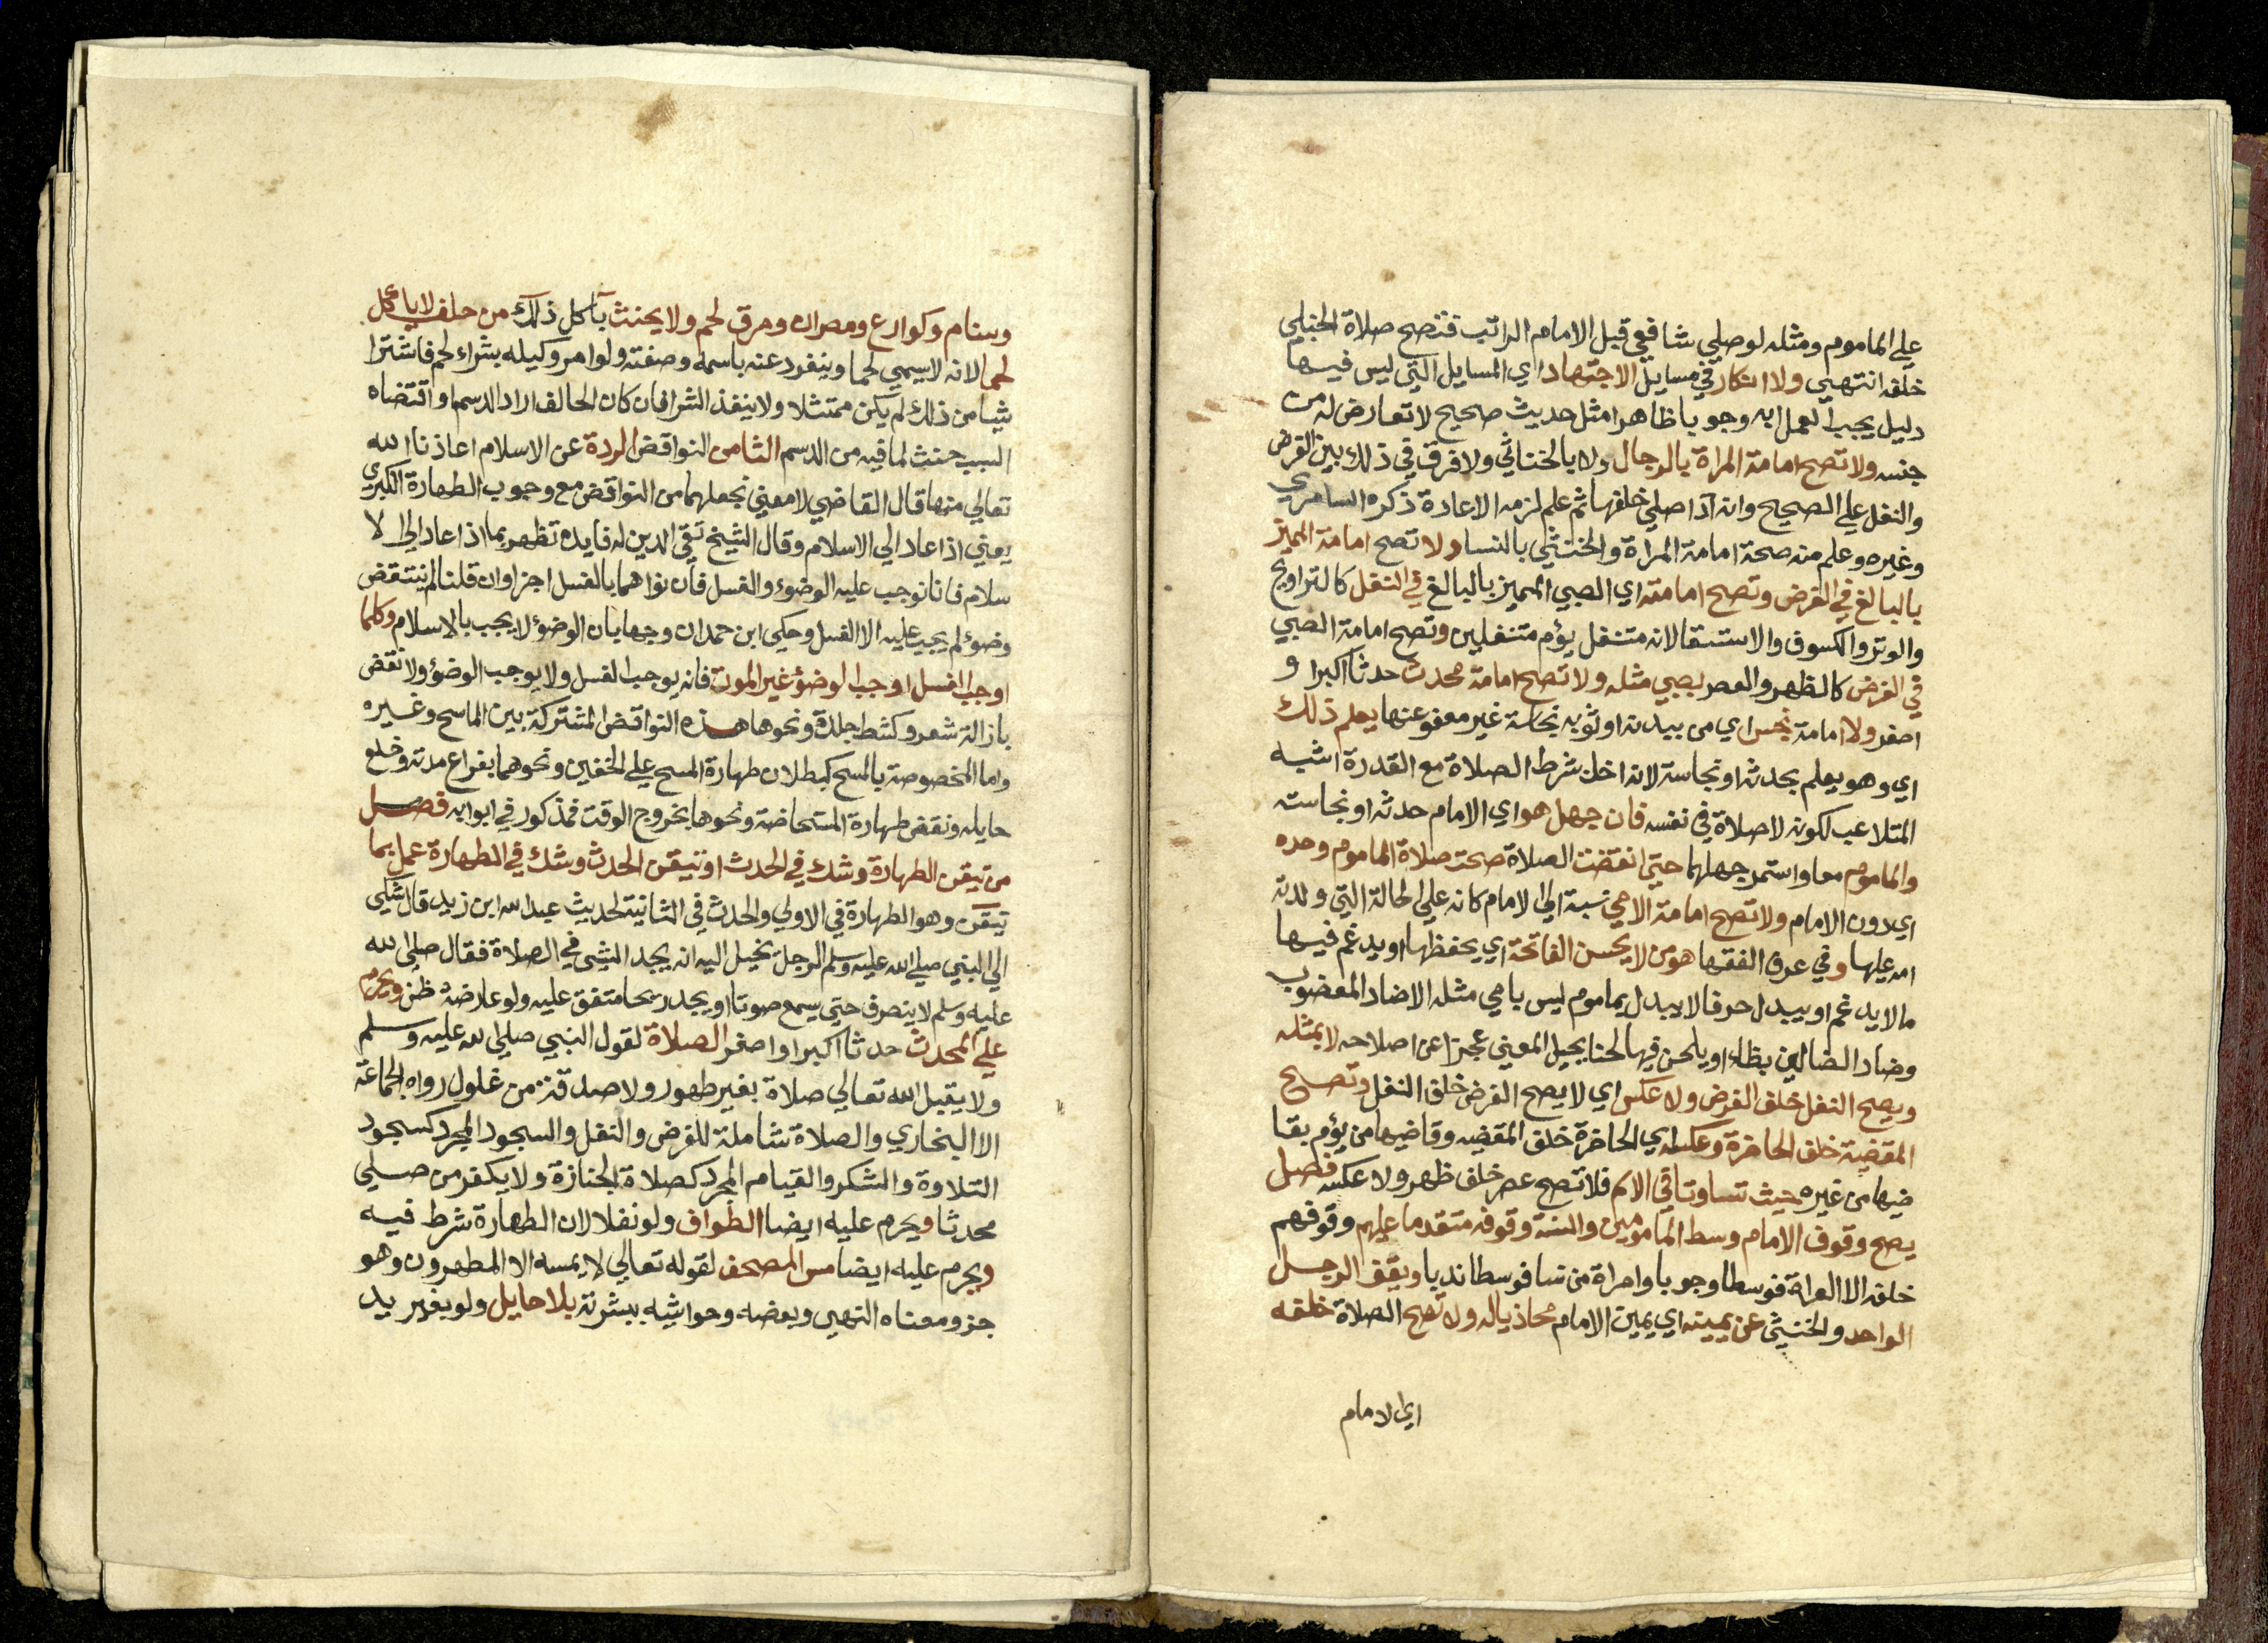 علي الماموم ومثله لو صلي شافعي قبل الامام الراتب فتصح صلاة الحنبلي
خلفه انتهي ولا انكار في مسايل الاجتهاد اي المسايل التي ليس فيها
دليل يجب العمل به وجوبا ظاهرا مثل حديث صحيح لا تعارض له من
جنسه ولا تصح امامة المراة بالرجال ولا بالخناثي ولا فرق في ذلك بين الفرض
والنفل علي الصحيح وانه اذا صلي خلفها ثم علم لزمه الاعادة ذكره السامري
وغيره وعلم منه صحة امامة المراة والخنثي بالنسا ولا تصح امامة المميز
بالبالغ في الفرض وتصح امامته اي الصبي المميز بالبالغ في النفل كالتراويح
والوتر والكسوف والاستسقا لانه متنفل يؤم متنفلين وتصح امامة الصبي
في الفرض كالظهر والعصر بصبي مثله ولا تصح امامة محدث حدثا اكبر او
اصغر ولا امامة نجس اي من ببدنه او ثوبه نجاسة غير معفو عنها يعلم ذلك
اي وهو يعلم بحدثه او نجاسته لانه اخل شرط الصلاة مع القدرة اشبه
المتلاعب لكونه لا صلاة في نفسه فان جهل هو اي الامام حدثه او نجاسته
والماموم معا واستمر جهلهما حتي انقضت الصلاة صحت صلاة الماموم وحده
اي دون الامام ولا تصح امامة الامي نسبة الي الام كانه علي الحالة التي ولدته
امه عليها وفي عرف الفقها هو من لا يحسن الفاتحة اي يحفظها او يدغم فيها
ما لا يدغم او يبدل حرفا لا يبدل بماموم ليس بامي مثله الا ضاد المغضوب
وضاد الضالين بظاء او يلحن فيها لحنا يحيل المعني عجزا عن اصلاحه لا بمثله
ويصح النفل خلف الفرض ولا عكس اي لا يصح الفرض خلف النفل وتصح
المقضية خلف الحاضرة وعكسه اي الحاضرة خلف المقضيه وقاضيها من يؤم بقا
ضيها من غيره حيث تساوتا في الاسم فلا تصح عصر خلف ظهر ولا عكسه فصل
يصح وقوف الامام وسط المامومين والسنة وقوفه متقدما عليهم وقوفهم
خلفه الا العراة فوسطا وجوبا وامراة من نسا فوسطا ندبا ويقف الرجل
الواحد والخنثي عن يمينه اي يمين الامام محاذيا له ولا تصح الصلاة خلفه
اي الامام
وسنام وكوارع ومصران ومرق لحم ولا يحنث بآكل ذلك من حلف لا ياكل
لحما لانه لا يسمي لحما وينفرد عنه باسمه وصفته ولو امر وكيله بشراء لحم فاشترا
شيا من ذلك لم يكن ممتثلا ولا ينفذ الشرا فان كان الحالف اراد الدسم او اقتضاه
السبب حنث لما فيه من الدسم الثامن النواقض الردة عن الاسلام اعاذنا الله
تعالي منها قال القاضي لا معني نجعلها من النواقض مع وجوب الطهارة الكبري
يعني اذا عاد الي الاسلام وقال الشيخ تقي الدين له فايده تظهر بما اذا عاد الي الا
سلام فانا نوجب عليه الوضوء والغسل فان نواهما بالغسل اجزا وان قلنا لم ينتقض
وضوئه لم يجب عليه الا الغسل وحكي ابن حمدان وجها بان الوضؤ لا يجب بالاسلام وكلما
اوجب الغسل اوجب الوضؤ غير الموت فانه يوجب الغسل ولا يوجب الوضؤ ولا نقض
بازالة شعر وكشط جلدة ونحوها هذه النواقض المشتركة بين الماسح وغيره
واما المخصوصة بالمسح كبطلان طهارة المسح علي الخفين ونحوهما بفراغ مدته وخلع
حايله ونقض طهارة المستحاضة ونحوها بخروج الوقت فمذكور في ابوابه فصل
من تيقن الطهارة وشك في الحدث او تيقن الحدث وشك في الطهارة عمل بما
تيقن وهو الطهارة في الاولي والحدث في الثانية لحديث عبد الله ابن زيد قال شكي
الي النبي صلي الله عليه وسلم الرجل يخيل اليه انه يجد الشي في الصلاة فقال صلي الله
عليه وسلم لا ينصرف حتي يسمع صوتا او يجد ريحا متفق عليه ولو عارضه ظن ويحرم
علي المحدث حدثا اكبر او اصغر الصلاة لقول النبي صلي الله عليه وسلم
ولا يقبل الله تعالي صلاة بغير طهور ولا صدقة من غلول رواه الجماعة
الا البخاري والصلاة شاملة للفرض والنفل والسجود المجرد كسجود
التلاوة والشكر والقيام المجرد كصلاة الجنازة ولا يكفر من صلي
محدثا ويحرم عليه ايضا الطواف ولو نفلا لان الطهارة شرط فيه
ويحرم عليه ايضا مس المصحف لقوله تعالي لا يمسه الا المطهرون وهو
جزو معناه النهي وبعضه وحواشيه ببشرته بلا حايل ولو بغير يد